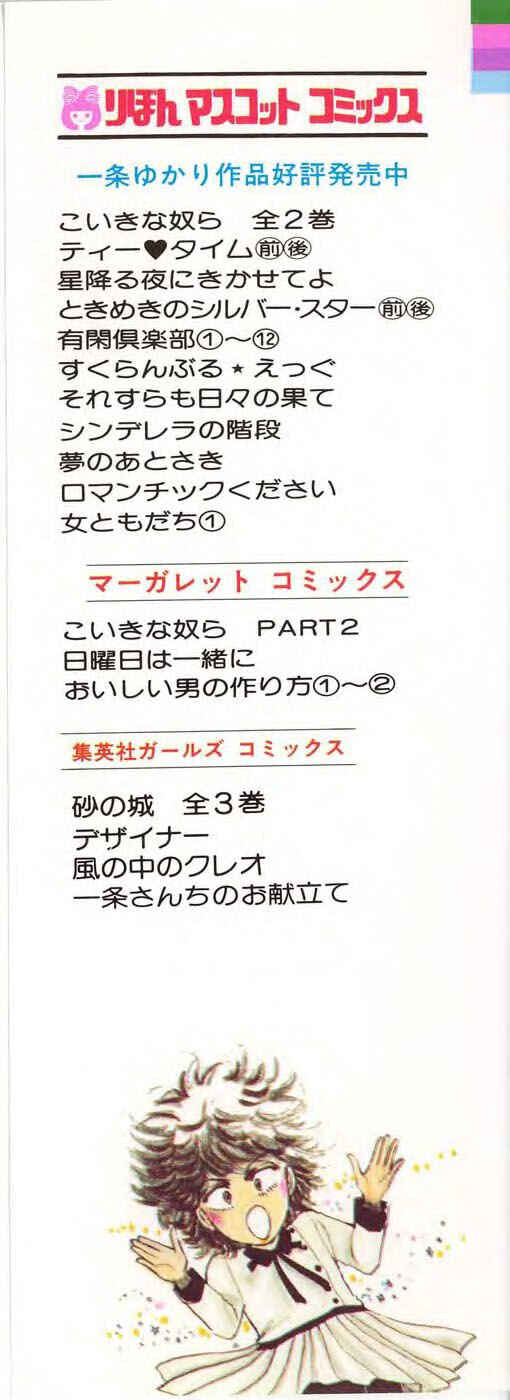 りぼん マスコット コミックス
一条ゆかり作品好評発売中
こいきな奴ら　全2巻
ティー♥タイム㊤㊦
星降る夜にきかせてよ
ときめきのシルバー・スター前後
有閑倶楽部①〜⑫
すくらんぶる★えっぐ
それすらも日々の果て
シンデレラの階段
夢のあとさき
ロマンチックください
女ともだち①
マーガレット コミックス
こいきな奴ら　PART2
日曜日は一緒に
おいしい男の作り方①〜②
集英社ガールズ コミックス
砂の城　全3巻
デザイナー
風の中のクレオ
一条さんちのお献立て